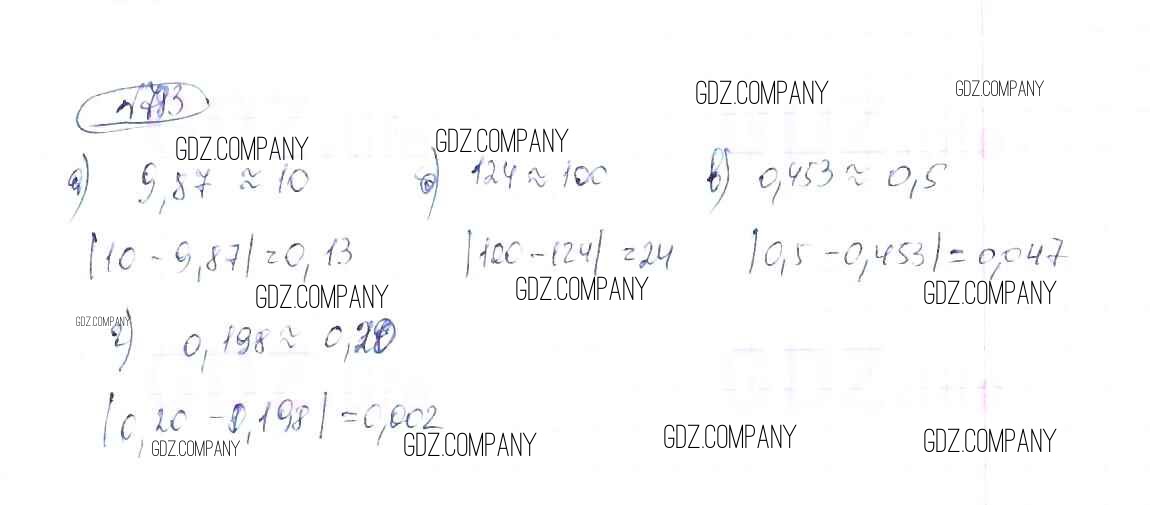 №783
GDZ.COMPANY GDZ.COMPANY
GDZ.COMPANY GDZ.COMPANY
а) 9,87 ≈ 10 б) 124 ≈ 100 в) 0,453 ≈ 0,5
|10 - 9,87| = 0,13 |100 - 124| = 24 |0,5 - 0,453| = 0,047
GDZ.COMPANY GDZ.COMPANY GDZ.COMPANY
GDZ.COMPANY
г) 0,198 ≈ 0,20
|0,20 - 0,198| = 0,002
GDZ.COMPANY GDZ.COMPANY GDZ.COMPANY GDZ.COMPANY